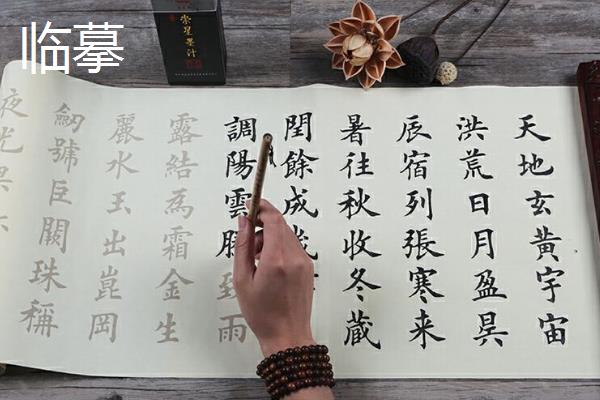 临摹
星墨汁
天地玄黄宇宙
洪荒日月盈昃
辰宿列張寒来
暑往秋收冬藏
閏餘成
調陽雲致雨
露結為霜金生
麗水玉出崑岡
劒號巨闕珠稱
夜光